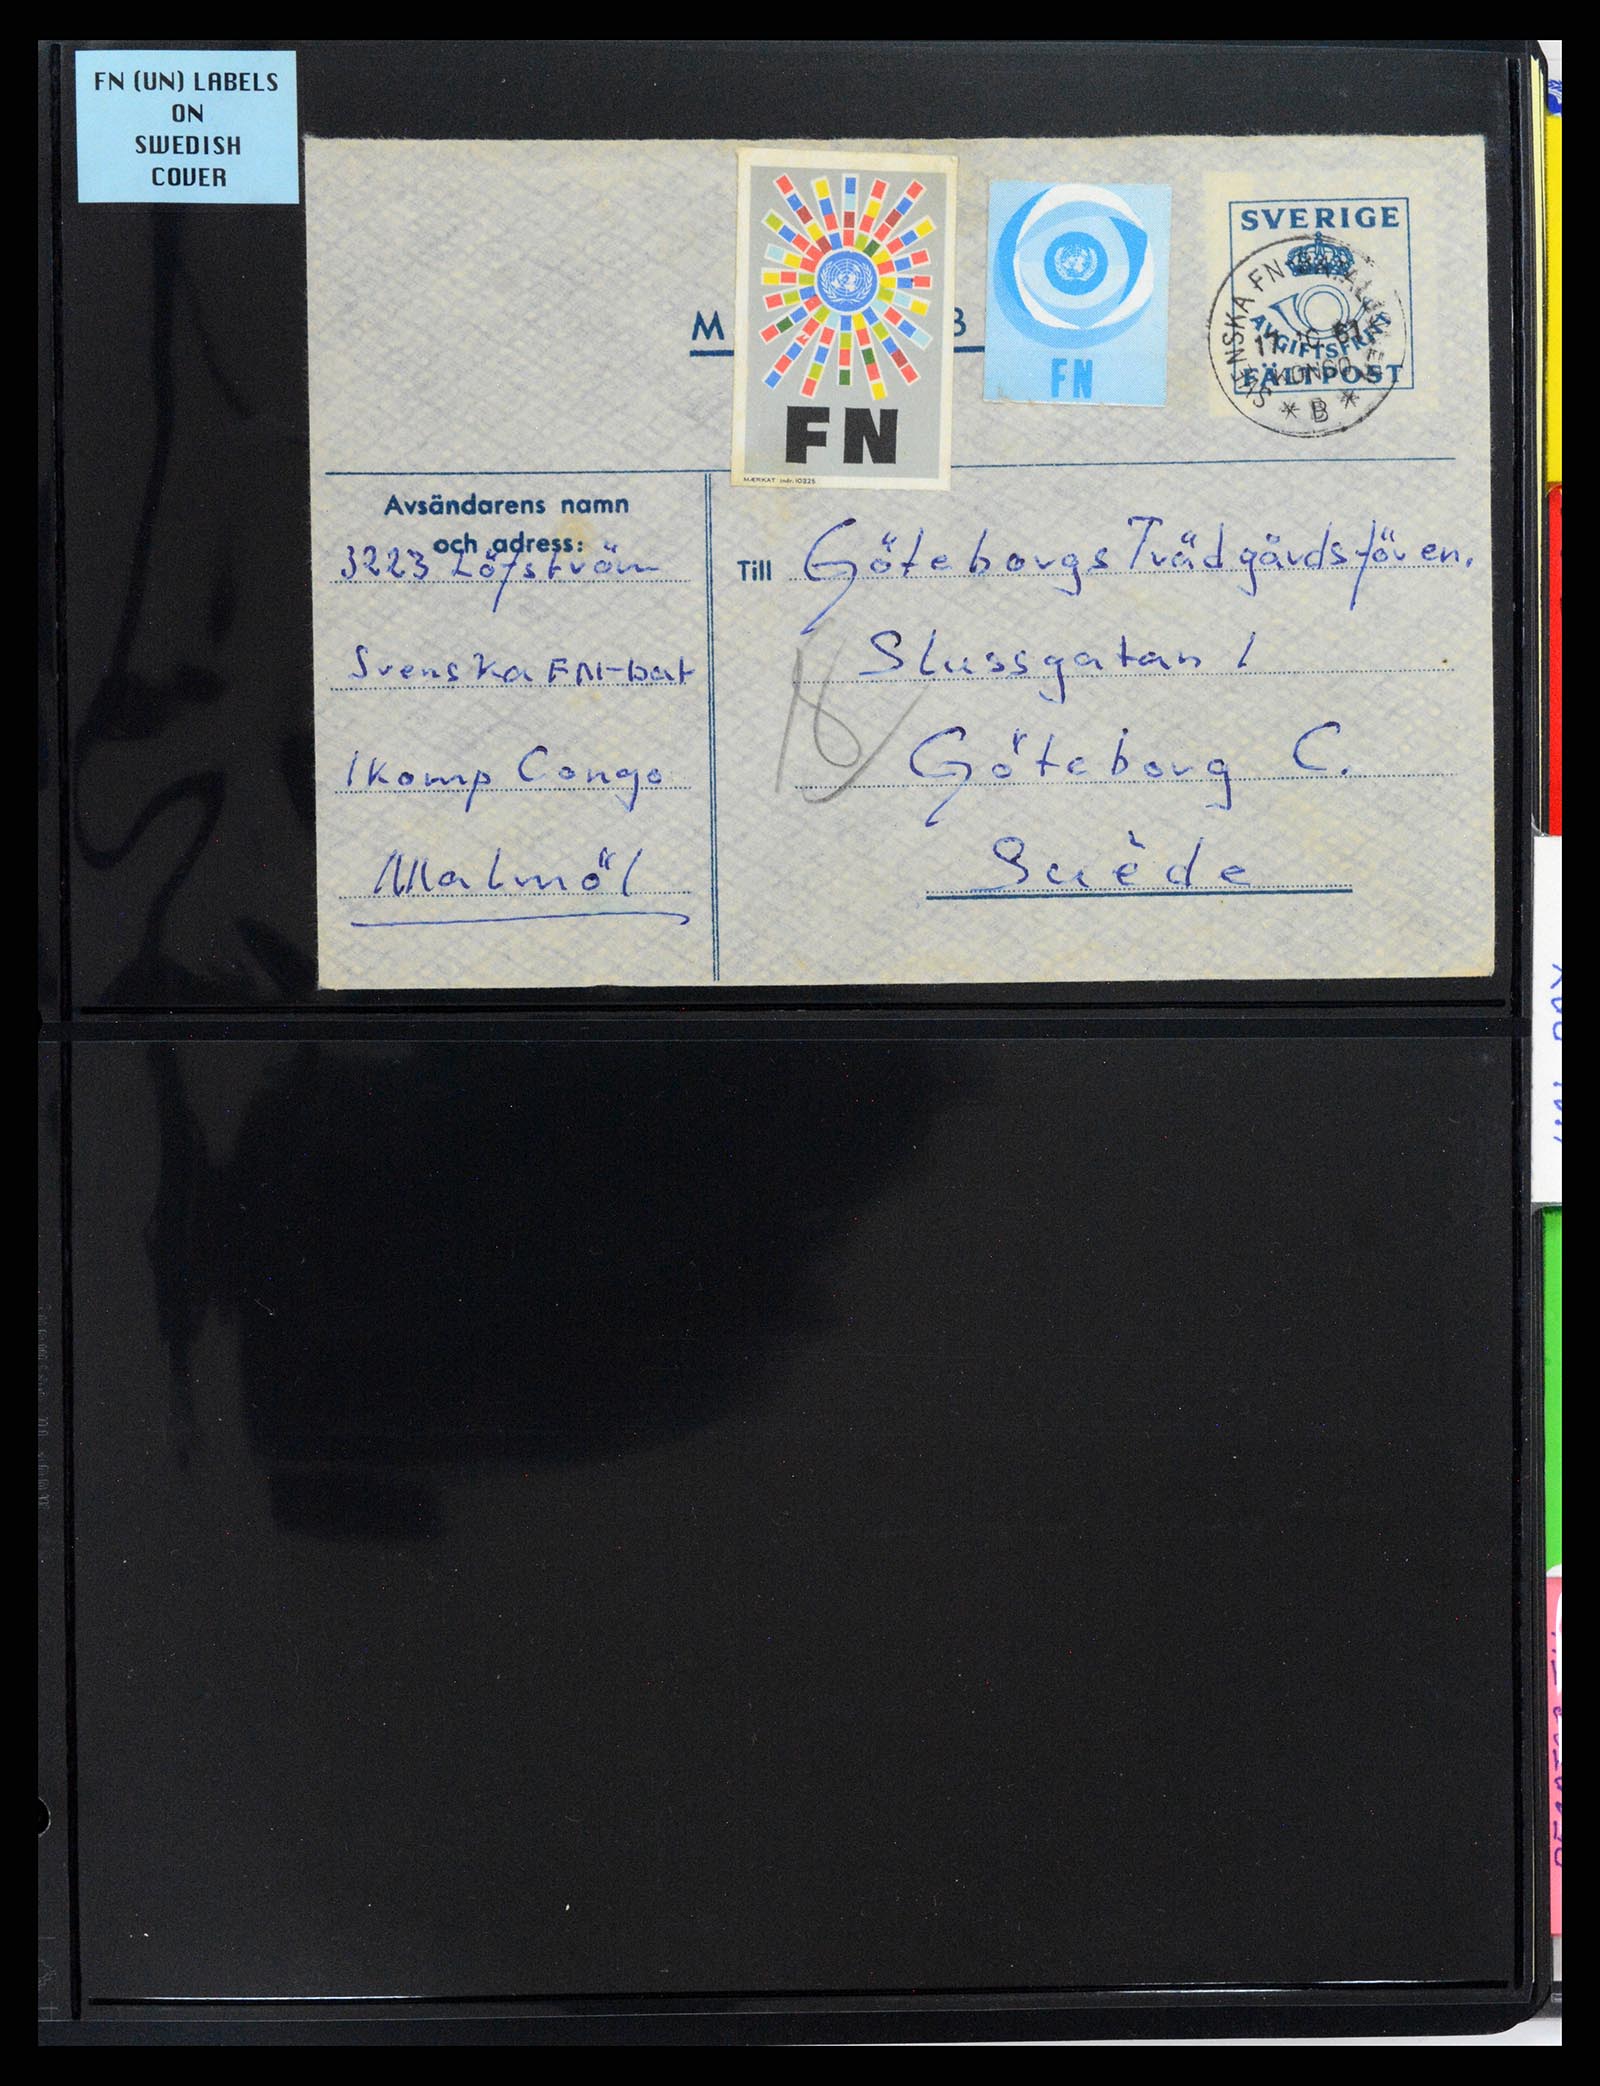 FN (UN) LABELS
ON
SWEDISH
COVER
M
B
FN
MÆRKAT indr. 10325
FN
SVERIGE
AVGIFTSFRITT
FÄLTPOST
SVENSKA FN
KONGO
* B *
Avsändarens namn
och adress:
3223 Löfström
Svenska FN-bat
1komp Congo
Malmö 1
Till Göteborgs Trädgårdsfören.
Slussgatan 1
Göteborg C.
Suède